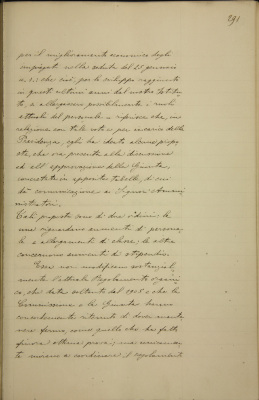 291
per il miglioramento economico degli
impiegati nella seduta del 25 gennaio
e, che per lo sviluppo raggiunto
in questi ultimi anni dal nostro Istitu-
to, a allargare possibilmente i ruoli
attuale del personale e riferisce che, in
relazione con tale voto e per incarico della
Presidenza, egli ha alcune propo-
ste, che ora presenta alla discussione
ed all'approvazione della Giunta,
concretate in apposite tabelle, di cui
dà comunicazione ai Signori Ammi-
nistratori.
Tali proposte sono di due ordini: le
une riguardano aumento di persona-
le e allargamenti di classe, le altre
concernono aumenti di stipendio.
Esse non modificano sostanzial-
mente l'attuale Regolamento organi-
co, che data soltanto dal 1905 e che la
Commissione e la Giunta hanno
concordemente ritenuto di dover mante-
nere fermo, come quello che ha fatto
finora ottima prova; ma unicamen-
te mirano a coordinare il regolamento